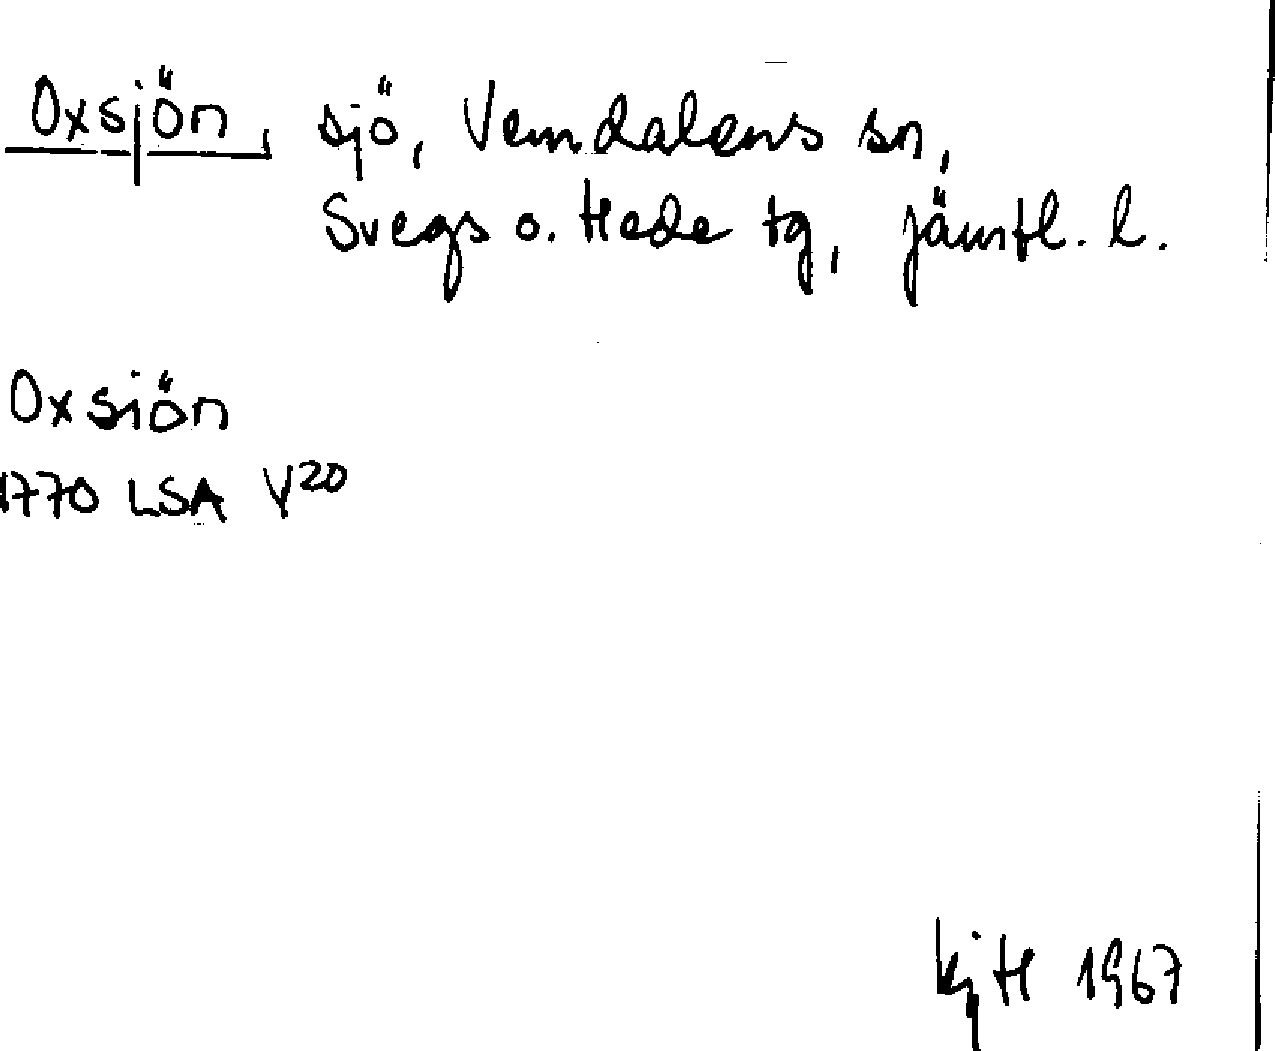 Oxsjön, sjö, Vemdalens sn,
Svegs o. Hede tg, Jämtl. l.
Oxsiön
1770 LSA Y20
KjH 1967